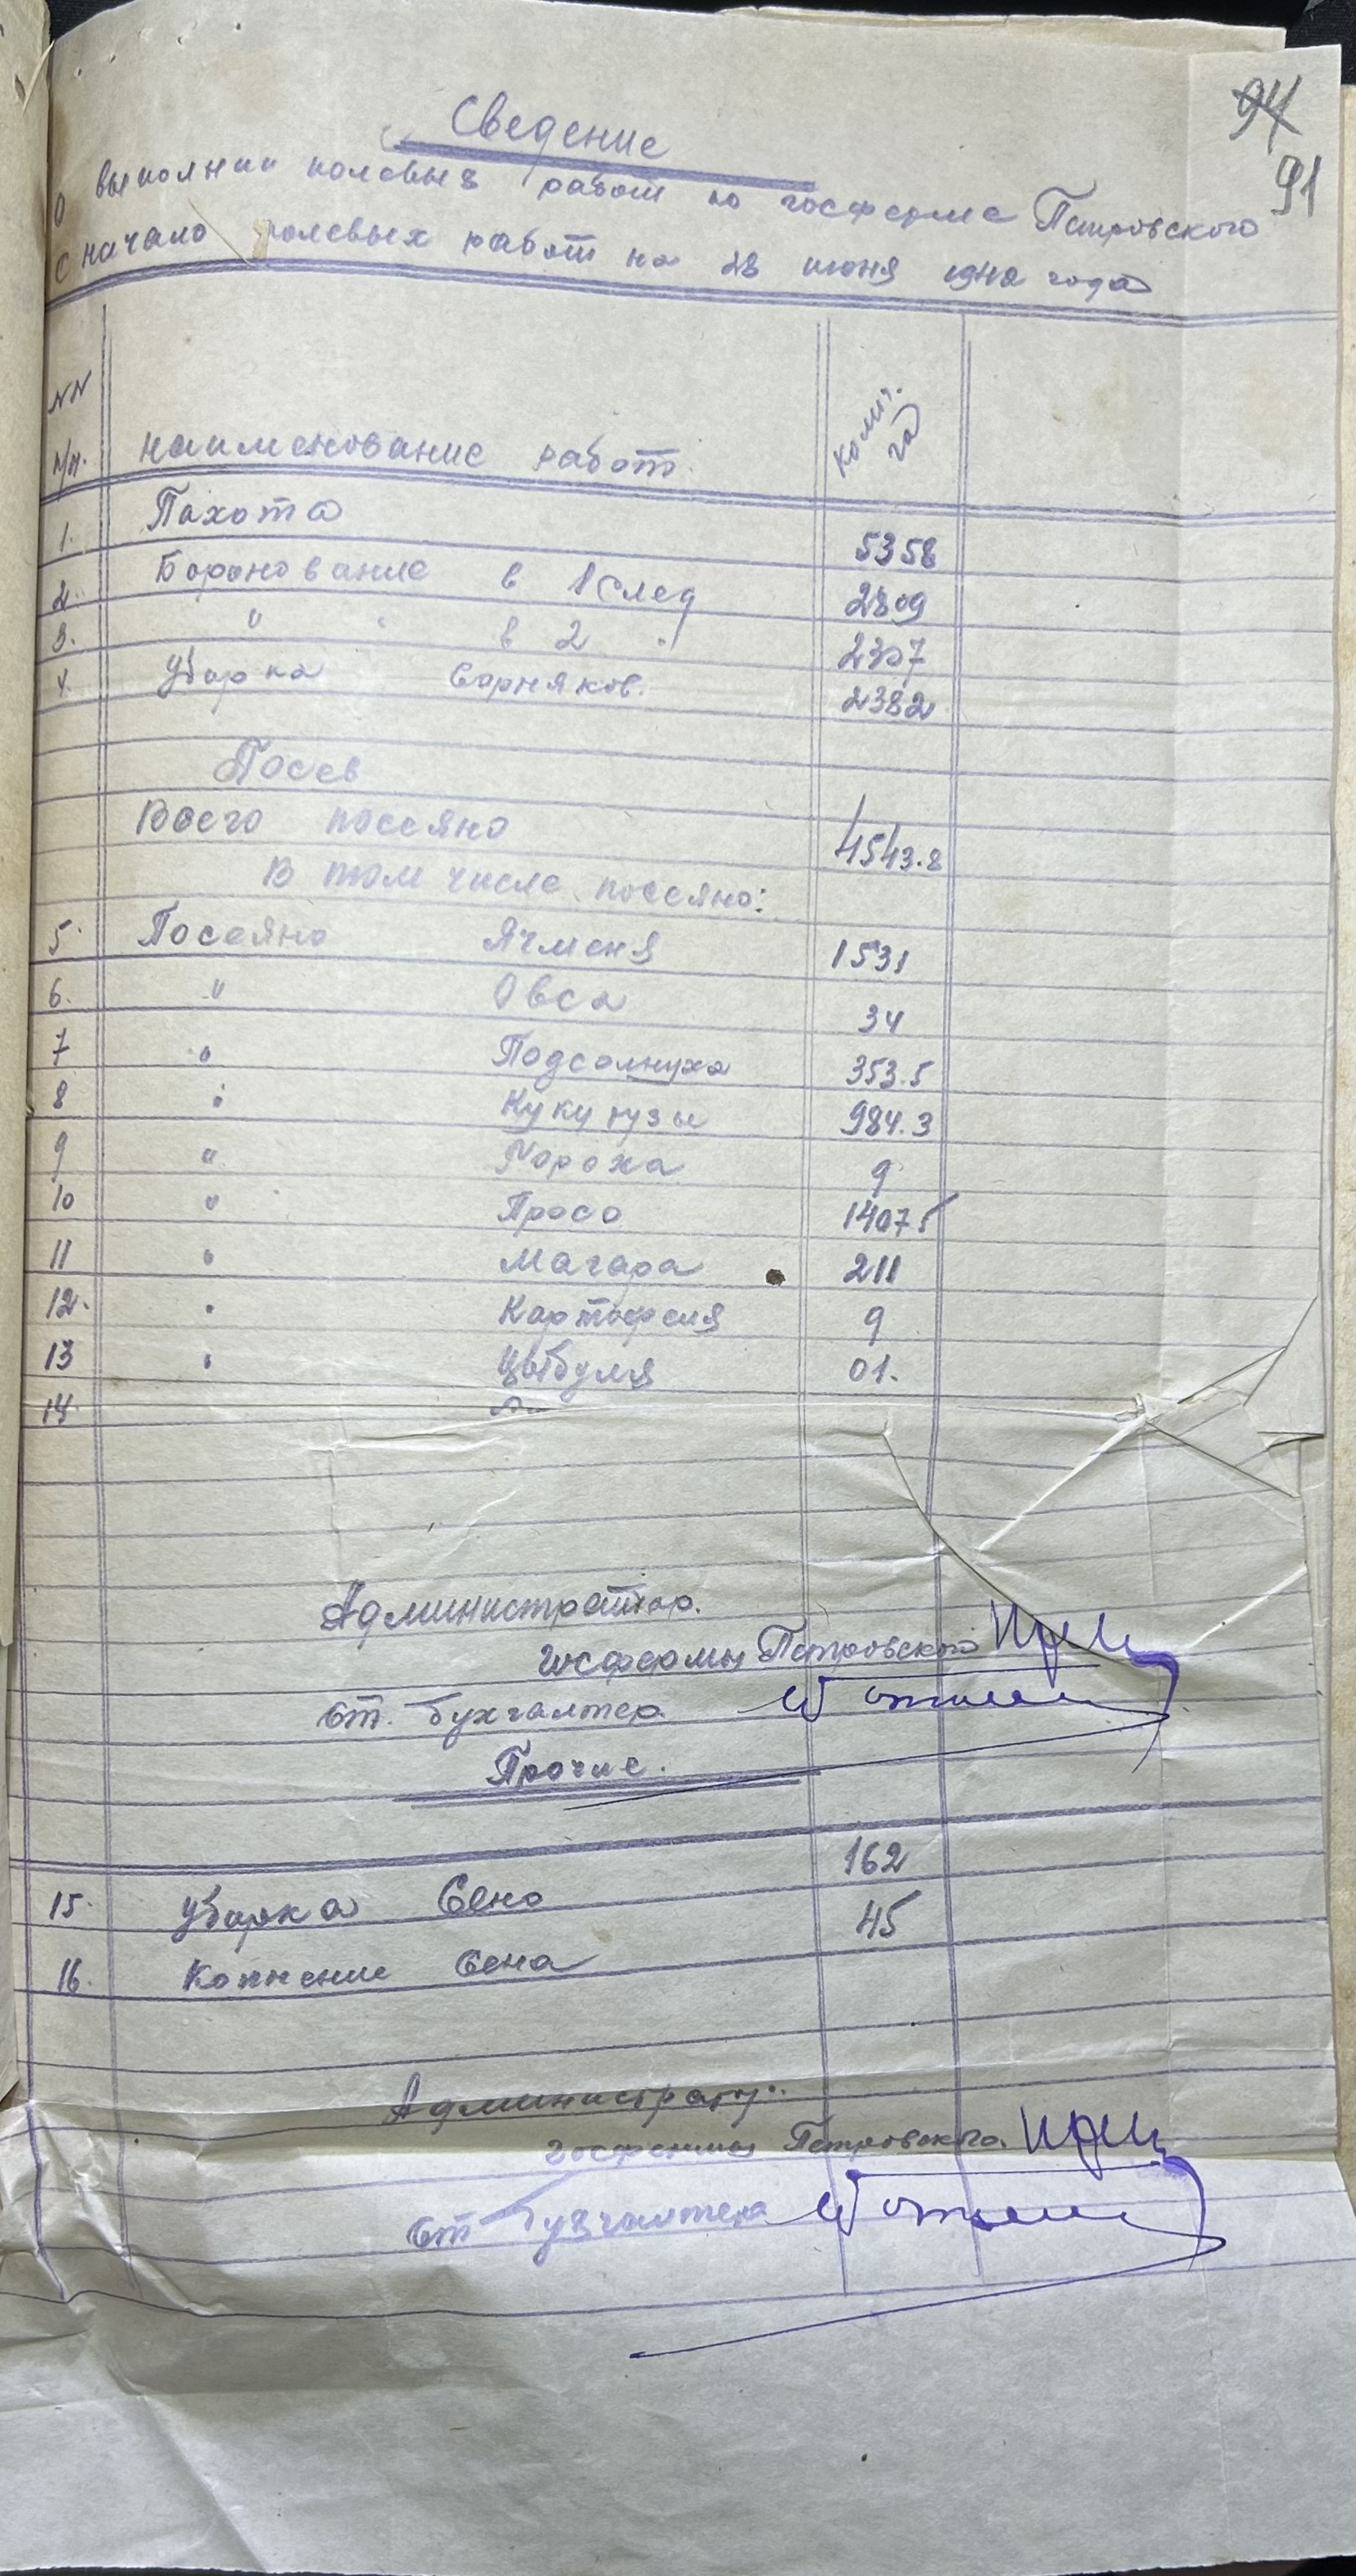 94
91
Сведение
О выполнии полевыя работ по госферме Петровского
С начало полевых работ на 28 июня 1942 года
NN п/п. наименование работ. колич. га
1. Пахота 5358
2. Боронование в 1 след 2809
3. " " в 2 " 2307
4. Уборка Сорняков. 2382
Посев
Всего посеяно 4543.8
В том числе посеяно:
5. Посеяно Ячменя 1531
6. " Овса 34
7 " Подсолнуха 353.5
8 " Кукурузы 984.3
9 " Гороха 9
10 " Просо 1407 5
11 " Магара 211
12. " Картофеля 9
13 " Цыбуля 01.
14
Администратор.
госфермы Петровского
Ст. бухгалтер
Прочие.
15. Уборка Сено 162
16. Копнение Сена 45
Администратор.
госфермы Петровского.
Ст бухгалтера